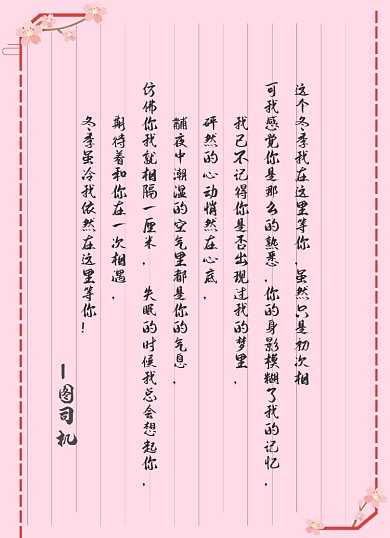 这个冬季我在这里等你,虽然只是初次相
可我感觉你是那么的熟悉,你的身影模糊了我的记忆,
我已不记得你是否出现过我的梦里,
砰然的心动悄然在心底,
黼夜中潮湿的空气里都是你的气息,
仿佛你我就相隔一厘米, 失眠的时候我总会想起你,
期待着和你在一次相遇,
冬季虽冷我依然在这里等你!
—图司机